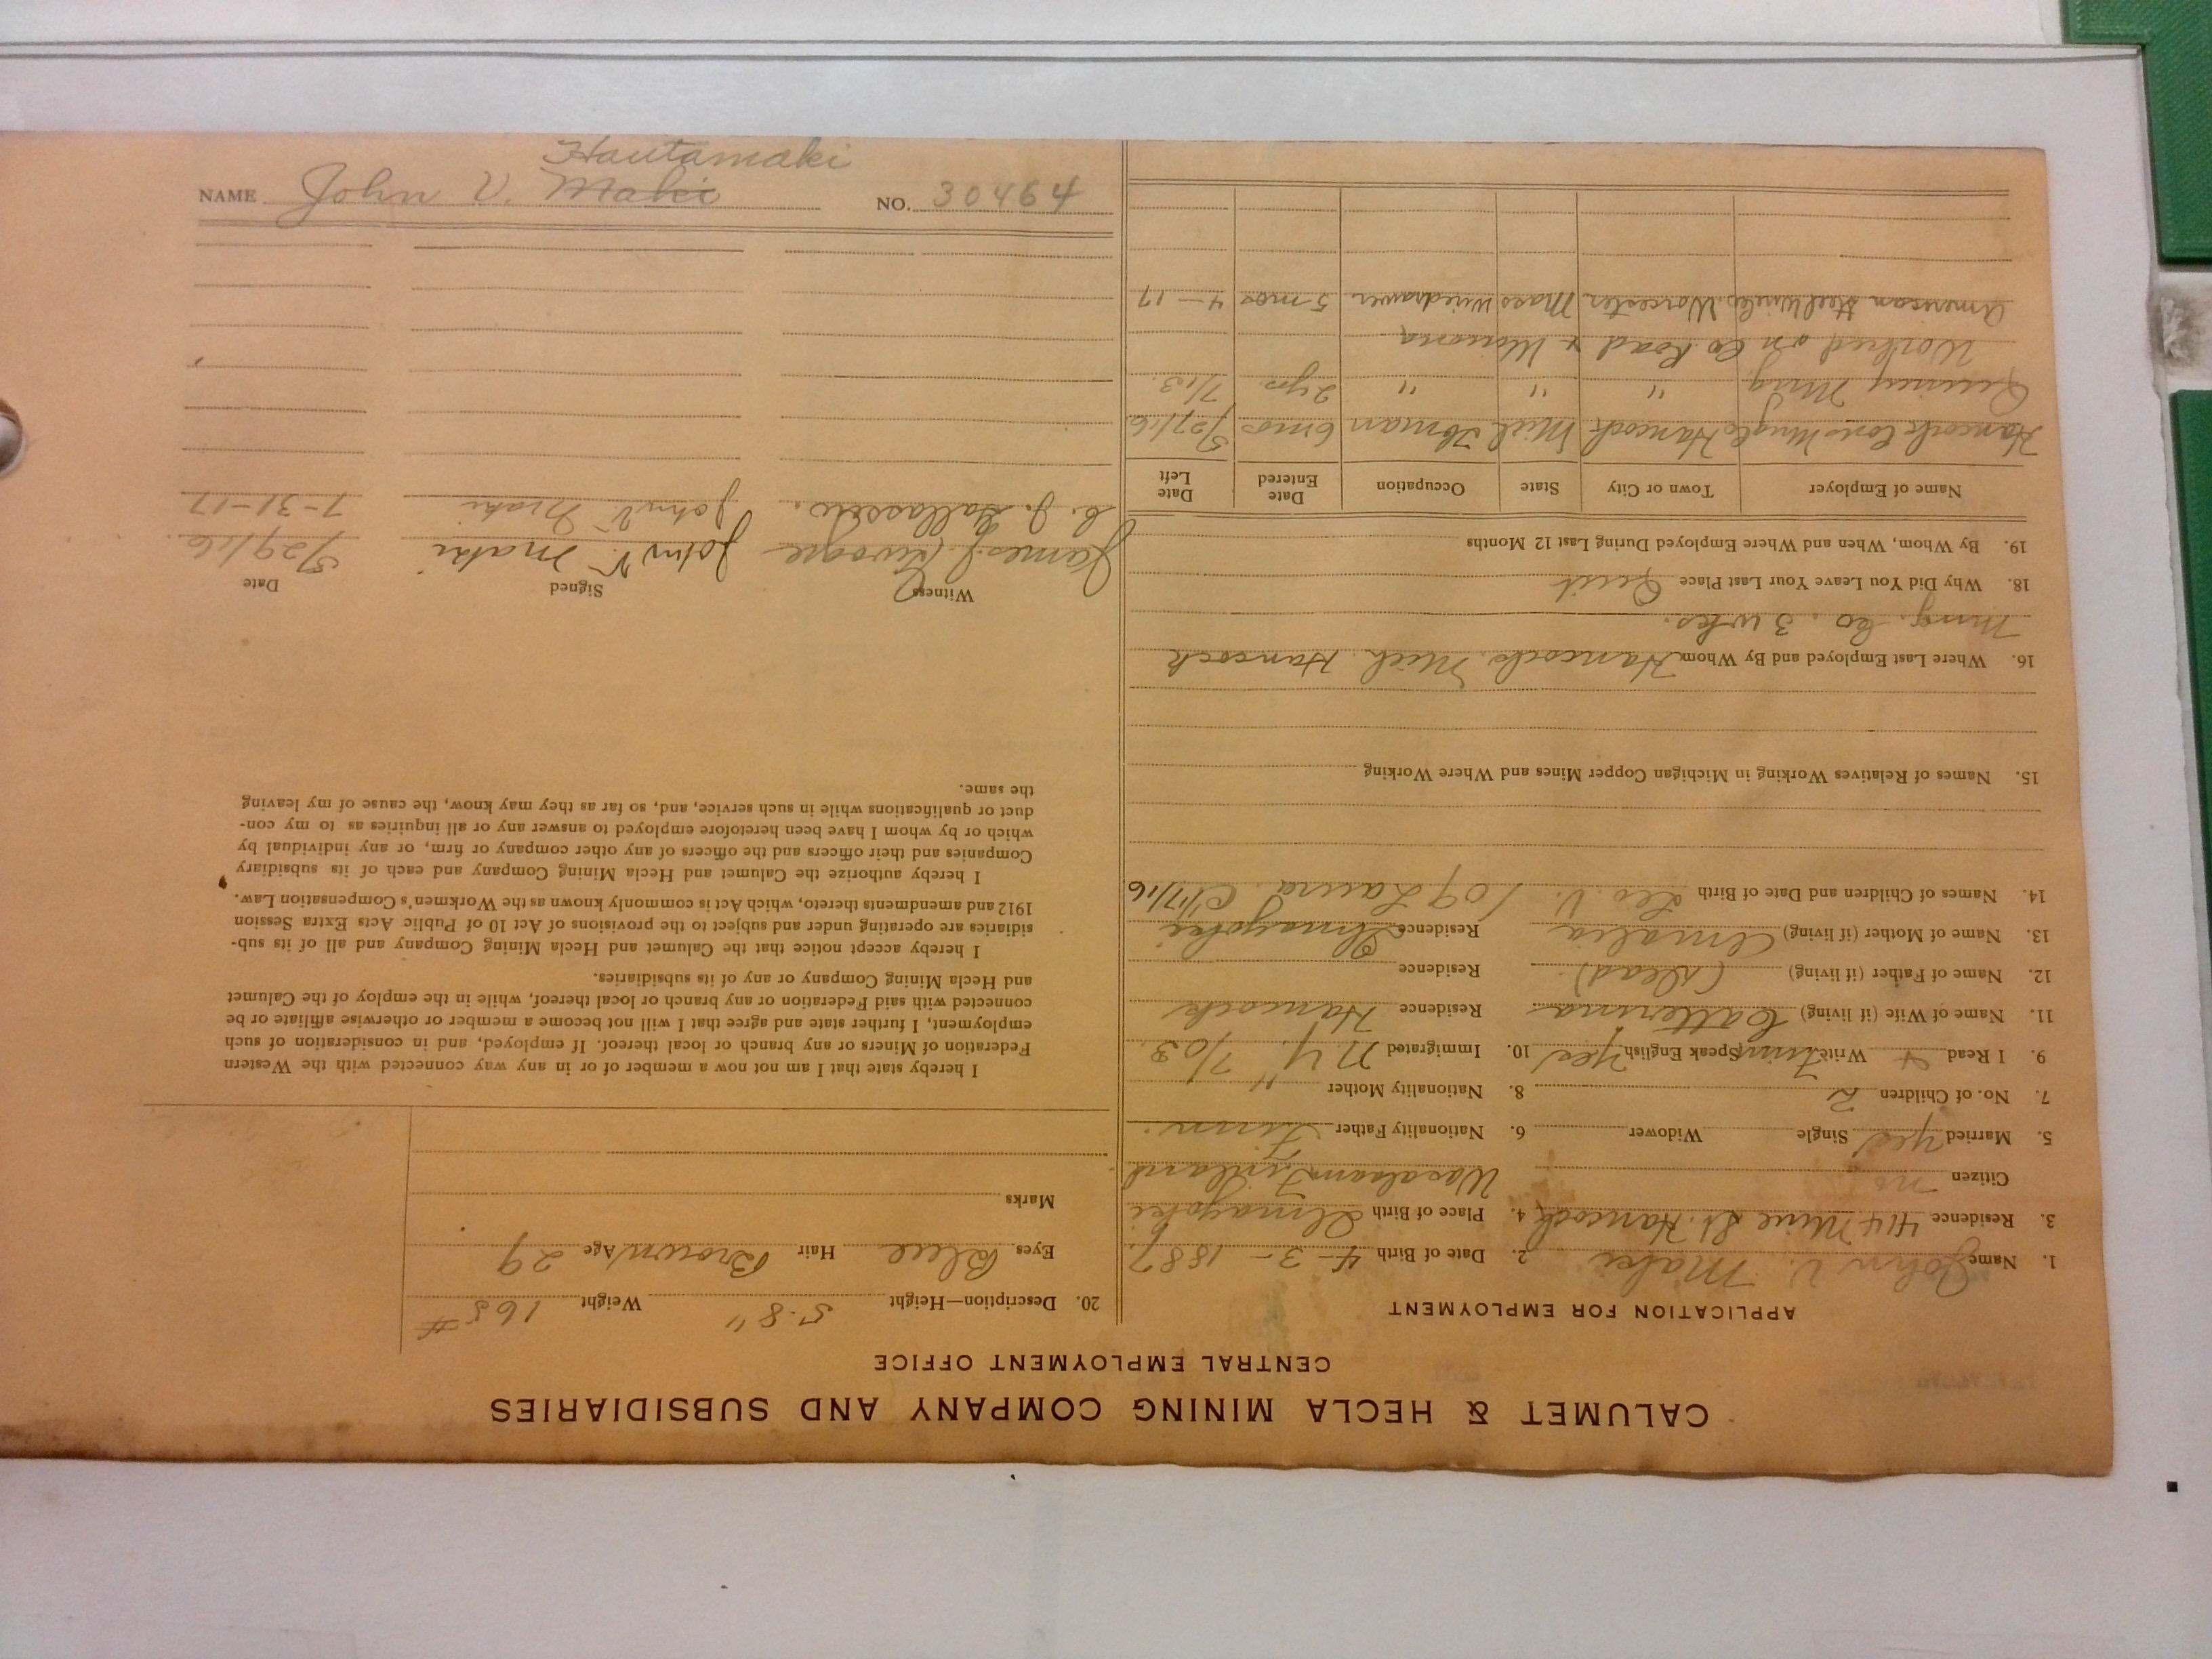 NAME John V. Maki Hautamaki NO. 30464
CALUMET & HECLA MINING COMPANY AND SUBSIDIARIES
CENTRAL EMPLOYMENT OFFICE
APPLICATION FOR EMPLOYMENT
1. Name John V. Maki 2. Date of Birth 4-3-1887
3. Residence 414 Mine St. Hancock 4. Place of Birth Ilmajoki
Citizen no Wasalaani Finland
5. Married yes Single Widower 6. Nationality Father Finn.
7. No. of Children 2 8. Nationality Mother "
9. I Read + Write Finn Speak English yes 10. Immigrated N.Y. 7/03.
11. Name of Wife (if living) Residence Hancock
12. Name of Father (if living) (dead) Residence
13. Name of Mother (if living) Amalia Residence Ilmajoki
14. Names of Children and Date of Birth Leo V. 109 Laura 17/16
15. Names of Relatives Working in Michigan Copper Mines and Where Working
16. Where Last Employed and By Whom Hancock, Mich. Hancock
Mng. Co. 3 wks.
18. Why Did You Leave Your Last Place Quit
19. By Whom, When and Where Employed During Last 12 Months
Name of Employer Town or City State Occupation Date Entered Date Left
Hancock Cons Mng Co Hancock Mich 6 mos 5/27/16
Quincy Mng " " " 2 yrs 7/13.
Worked on Co Road + Winona
American Steel Wire Co Worcester Mass Wiredrawer 5 mos 4-17
20. Description—Height 5.8" Weight 165 #
Eyes Blue Hair Brown Age 29
Marks
I hereby state that I am not now a member of or in any way connected with the Western
Federation of Miners or any branch or local thereof. If employed, and in consideration of such
employment, I further state and agree that I will not become a member or otherwise affiliate or be
connected with said Federation or any branch or local thereof, while in the employ of the Calumet
and Hecla Mining Company or any of its subsidiaries.
I hereby accept notice that the Calumet and Hecla Mining Company and all of its sub-
sidiaries are operating under and subject to the provisions of Act 10 of Public Acts Extra Session
1912 and amendments thereto, which Act is commonly known as the Workmen's Compensation Law.
I hereby authorize the Calumet and Hecla Mining Company and each of its subsidiary
Companies and their officers and the officers of any other company or firm, or any individual by
which or by whom I have been heretofore employed to answer any or all inquiries as to my con-
duct or qualifications while in such service, and, so far as they may know, the cause of my leaving
the same.
Witness Signed Date
James John V. Maki 5/29/16
C. J. John V Maki 7-31-17